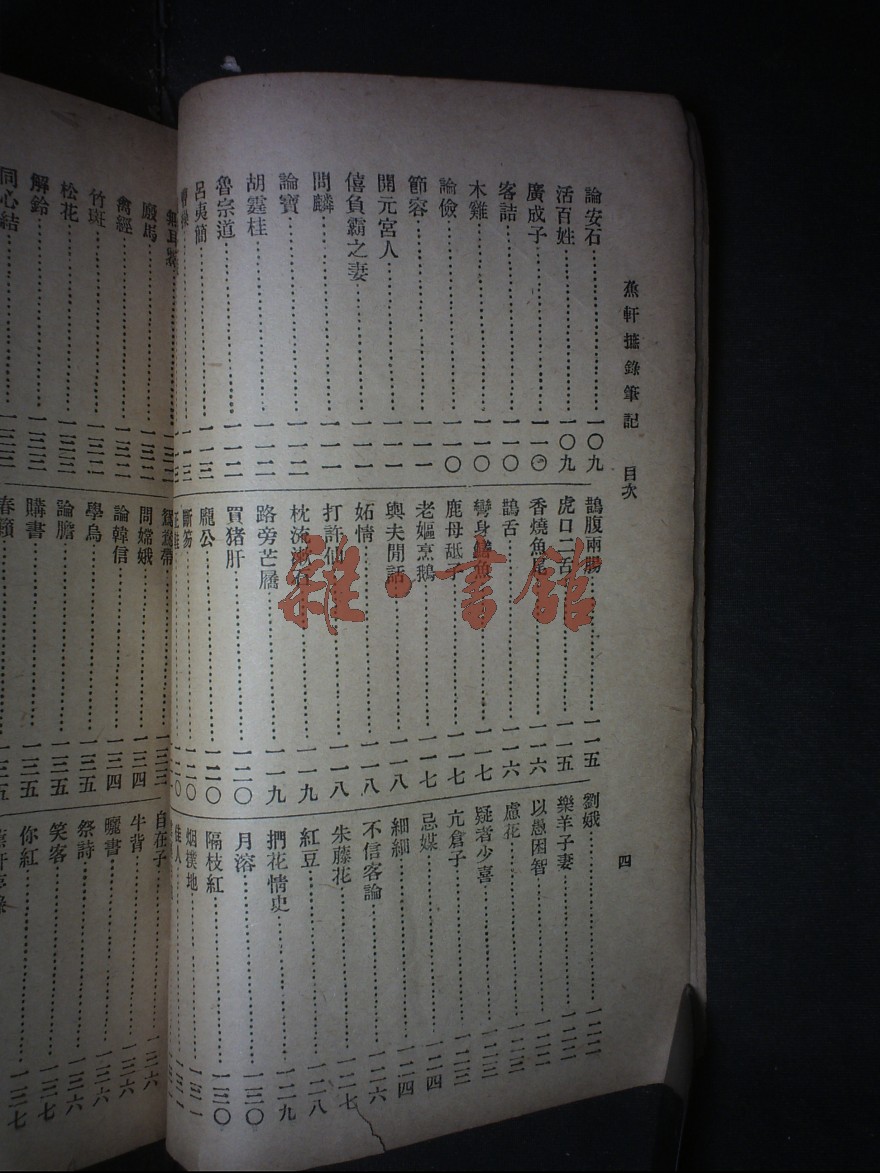 蕉軒摭錄筆記 目次 四
論安石 一〇九
活百姓 一〇九
廣成子 一一〇
客詰 一一〇
木雞 一一〇
論儉 一一〇
節容 一一一
開元宮人 一一一
僖負霸之妻 一一一
問麟 一一一
論寶 一一二
胡霆桂 一一二
魯宗道 一一二
呂夷簡 一一三
鵲腹兩腸 一一五
虎口二舌 一一五
香燒魚尾 一一六
鵲舌 一一六
彎身鱔魚 一一七
鹿母舐子 一一七
老嫗烹鵝 一一七
輿夫閒話 一一八
妬情 一一八
打許仙 一一八
枕流漱石 一一九
路旁芒屩 一一九
買猪肝 一二〇
龐公 一二〇
斷笏 一二〇
劉娥 一二二
樂羊子妻 一二二
以愚困智 一二二
慮花 一二二
疑者少喜 一二三
亢倉子 一二三
忌媒 一二四
細細 一二四
不信客論 一二六
朱藤花 一二七
紅豆 一二八
捫花情史 一二九
月溶 一三〇
隔枝紅 一三〇
烟撲地 一三一
佳人
廄馬
禽經 一三二
竹斑 一三二
松花 一三三
解鈴 一三三
同心結 一三三
鴛鴦帶 一三三
問嫦娥 一三四
論韓信 一三四
學烏 一三五
論膽 一三五
購書 一三五
春籟 一三五
自在子 一三六
牛背 一三六
曬書 一三六
祭詩 一三六
笑客 一三七
你紅 一三七